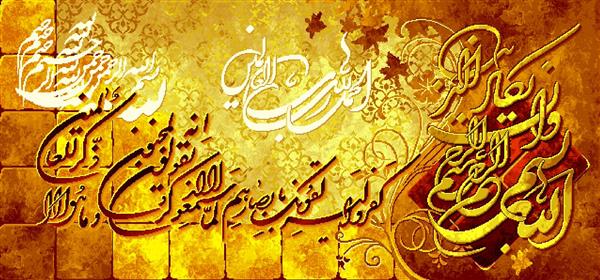 بسم الله الرحمن الرحيم
وان يكاد الذين
كفروا ليزلقونك بابصارهم لما سمعوا الذكر
ويقولون انه لمجنون
وما هو الا
ذكر للعالمين
الحمد لله رب العالمين
بسم الله الرحمن الرحيم